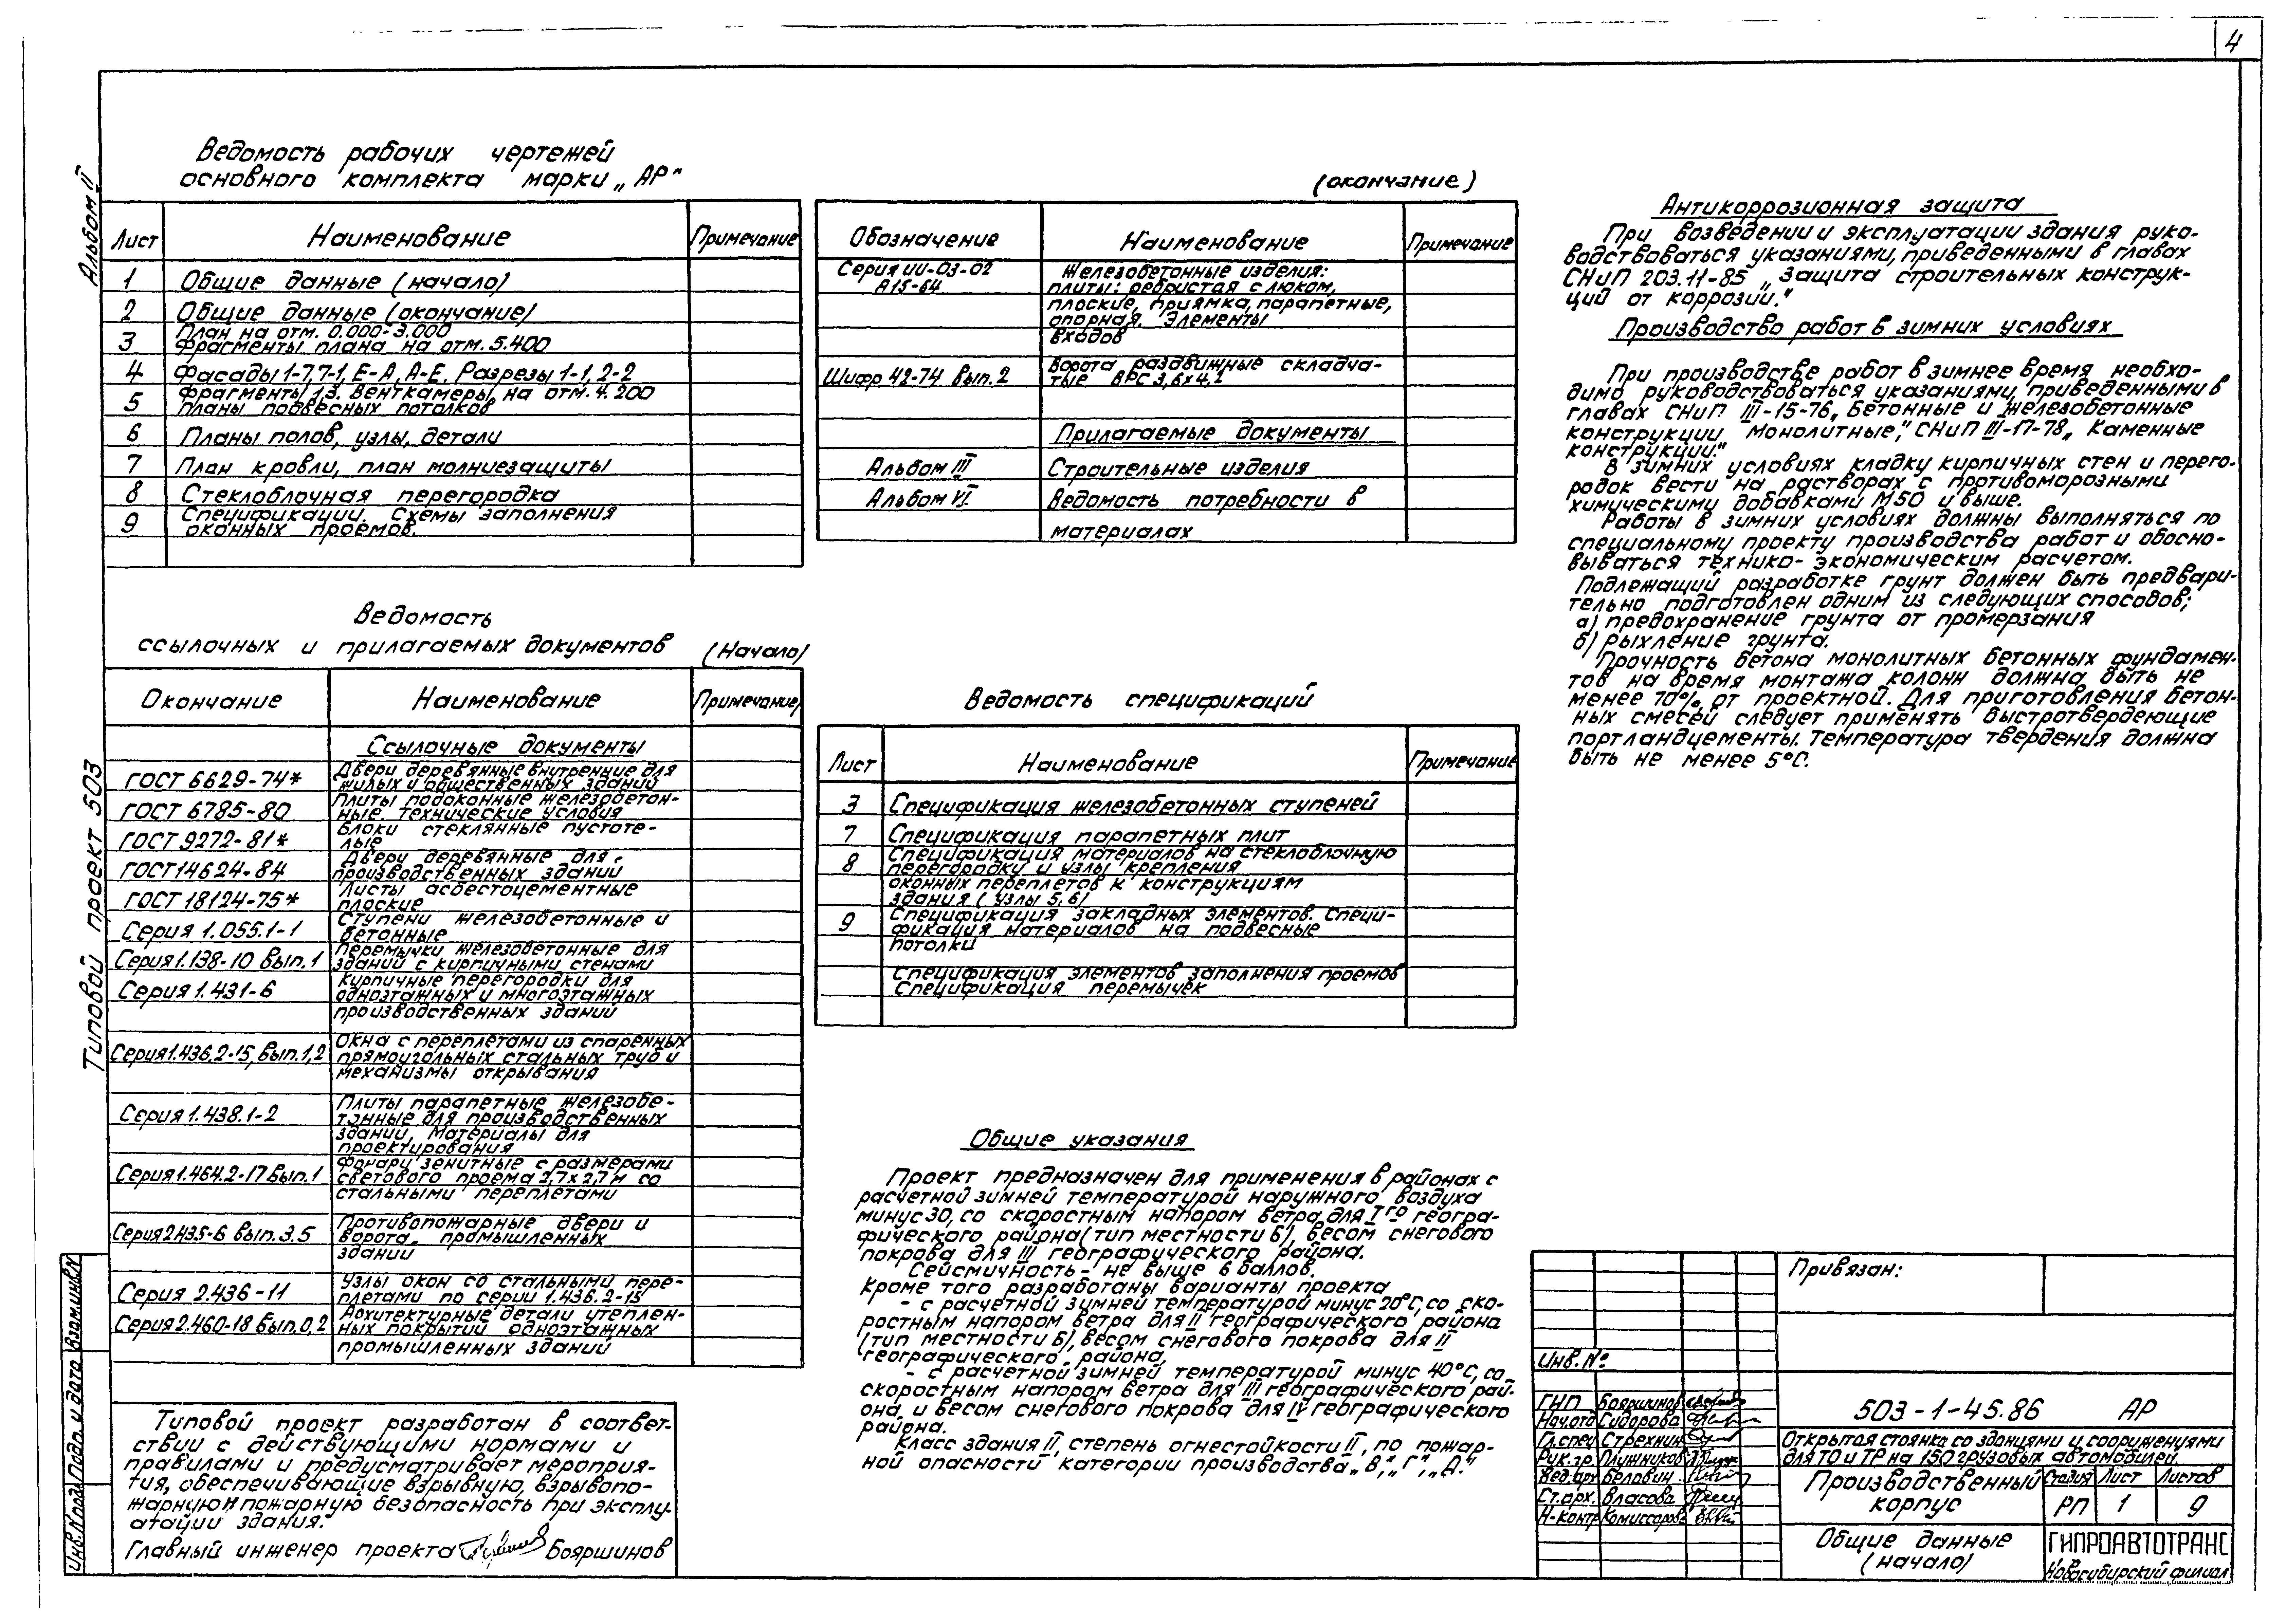 4
Альбом II
Типовой проект 503
Ведомость рабочих чертежей
основного комплекта марки „АР"
Лист Наименование Примечание
1 Общие данные (начало)
2 Общие данные (окончание)
План на отм. 0.000-3.000
3 Фрагменты плана на отм. 5.400
4 Фасады 1-7,7-1, Е-А, А-Е. Разрезы 1-1, 2-2
Фрагменты 1,3. Венткамеры на отм. 4.200
5 Планы подвесных потолков
6 Планы полов, узлы, детали
7 План кровли, план молниезащиты
8 Стеклоблочная перегородка
9 Спецификации. Схемы заполнения
оконных проемов.
Ведомость
ссылочных и прилагаемых документов (Начало)
Окончание Наименование Примечание
Ссылочные документы
ГОСТ 6629-74* Двери деревянные внутренние для
жилых и общественных зданий
ГОСТ 6785-80 Плиты подоконные железобетон-
ные. Технические условия
ГОСТ 9272-81* Блоки стеклянные пустоте-
лые
ГОСТ 14624-84 Двери деревянные для
производственных зданий
ГОСТ 18124-75* Листы асбестоцементные
плоские
Серия 1.055.1-1 Ступени железобетонные и
бетонные
Серия 1.138-10 вып.1 Перемычки железобетонные для
зданий с кирпичными стенами
Серия 1.431-6 Кирпичные перегородки для
одноэтажных и многоэтажных
производственных зданий
Серия 1.436.2-15, вып.1,2 Окна с переплетами из спаренных
прямоугольных стальных труб и
механизмы открывания
Серия 1.438.1-2 Плиты парапетные железобе-
тонные для производственных
зданий, Материалы для
проектирования
Серия 1.464.2-17 вып.1 Фонари зенитные с размерами
светового проема 2,7х2,7м со
стальными переплетами
Серия 2.435-6 вып.3.5 Противопожарные двери и
ворота промышленных
зданий
Серия 2.436-11 Узлы окон со стальными пере-
плетами по серии 1.436.2-15
Серия 2.460-18 вып.0,2 Архитектурные детали утеплен-
ных покрытий одноэтажных
промышленных зданий
Типовой проект разработан в соответ-
ствии с действующими нормами и
правилами и предусматривает мероприя-
тия, обеспечивающие взрывную, взрывопо-
жарную и пожарную безопасность при эксплу-
атации здания.
Главный инженер проекта Бояршинов
(окончание)
Обозначение Наименование Примечание
Серия ИИ-03-02 Железобетонные изделия:
А15-64 плиты: ребристая с люком,
плоские, приямка, парапетные,
опорная. Элементы
входов
Шифр 42-74 вып.2 Ворота раздвижные складча-
тые ВРС 3,6х4,2
Прилагаемые документы
Альбом III Строительные изделия
Альбом VI Ведомость потребности в
материалах
Ведомость спецификаций
Лист Наименование Примечание
3 Спецификация железобетонных ступеней
7 Спецификация парапетных плит
Спецификация материалов на стеклоблочную
8 перегородку и узлы крепления
оконных переплетов к конструкциям
здания (узлы 5,6)
9 Спецификация закладных элементов. Специ-
фикация материалов на подвесные
потолки
Спецификация элементов заполнения проемов
Спецификация перемычек
Общие указания
Проект предназначен для применения в районах с
расчетной зимней температурой наружного воздуха
минус 30, со скоростным напором ветра для Iго геогра-
фического района (тип местности Б), весом снегового
покрова для III географического района.
Сейсмичность - не выше 6 баллов.
Кроме того разработаны варианты проекта
- с расчетной зимней температурой минус 20°С, со ско-
ростным напором ветра для II географического района
(тип местности Б), весом снегового покрова для II
географического района,
- с расчетной зимней температурой минус 40°С, со
скоростным напором ветра для III географического рай-
она, и весом снегового покрова для IV географического
района.
Класс здания II, степень огнестойкости II, по пожар-
ной опасности категории производства „В", „Г", „Д".
Антикоррозионная защита
При возведении и эксплуатации здания руко-
водствоваться указаниями, приведенными в главах
СНиП 203.11-85 „Защита строительных конструк-
ций от коррозии."
Производство работ в зимних условиях
При производстве работ в зимнее время необхо-
димо руководствоваться указаниями, приведенными в
главах СНиП III-15-76 „Бетонные и железобетонные
конструкции Монолитные," СНиП III-17-78 „Каменные
конструкции."
В зимних условиях кладку кирпичных стен и перего-
родок вести на растворах с противоморозными
химическими добавками М50 и выше.
Работы в зимних условиях должны выполняться по
специальному проекту производства работ и обосно-
вываться технико-экономическим расчетом.
Подлежащий разработке грунт должен быть предвари-
тельно подготовлен одним из следующих способов;
а) предохранение грунта от промерзания
б) рыхление грунта.
Прочность бетона монолитных бетонных фундамен-
тов на время монтажа колонн должна быть не
менее 70%, от проектной. Для приготовления бетон-
ных смесей следует применять быстротвердеющие
портландцементы. Температура твердения должна
быть не менее 5°С.
Привязан:
Инв. №
ГНП Бояршинов
Нач.отд Сидорова
Гл.спец Стрехнин
Рук.гр. Плужников
Вед.арх Беловин
Ст.арх. Власова
Н-контр Комиссарова
503-1-45.86 АР
Открытая стоянка со зданиями и сооружениями
для ТО и ТР на 150 грузовых автомобилей
Производственный корпус
Стадия Лист Листов
РП 1 9
Общие данные
(начало)
ГИПРОАВТОТРАНС
Новосибирский филиал
Инв.N подл. Подп. и дата Взам.инв.N